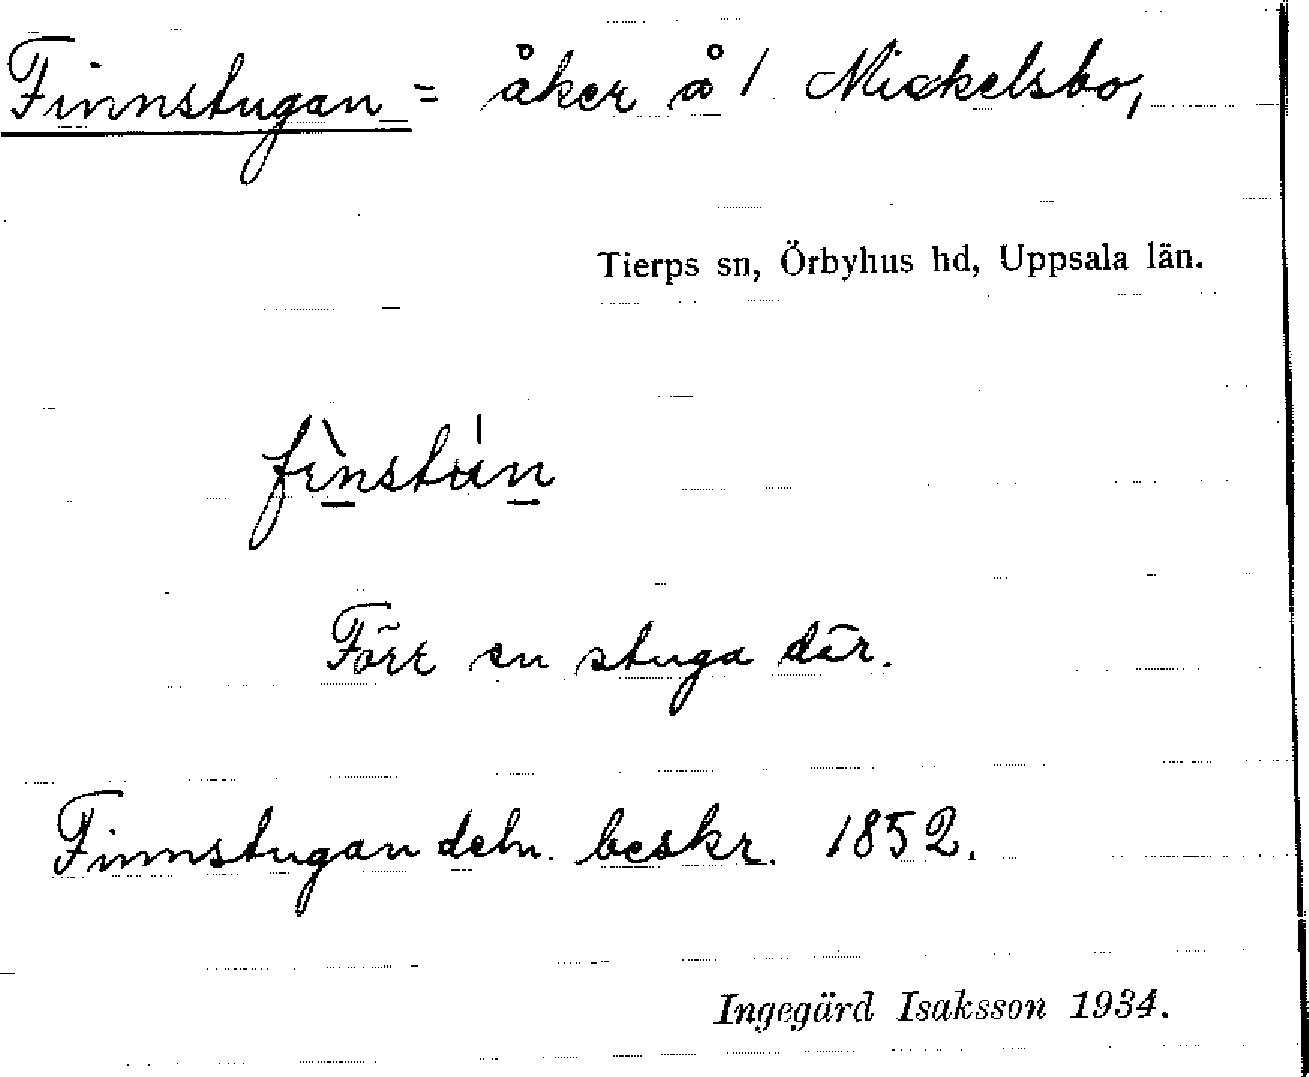 Finnstugan = åker å 1 Mickelsbo,
Tierps sn, Örbyhus hd, Uppsala län.
fìnstu̍n
Förr en stuga där.
Finnstugan deln. beskr. 1852.
Ingegärd Isaksson 1934.